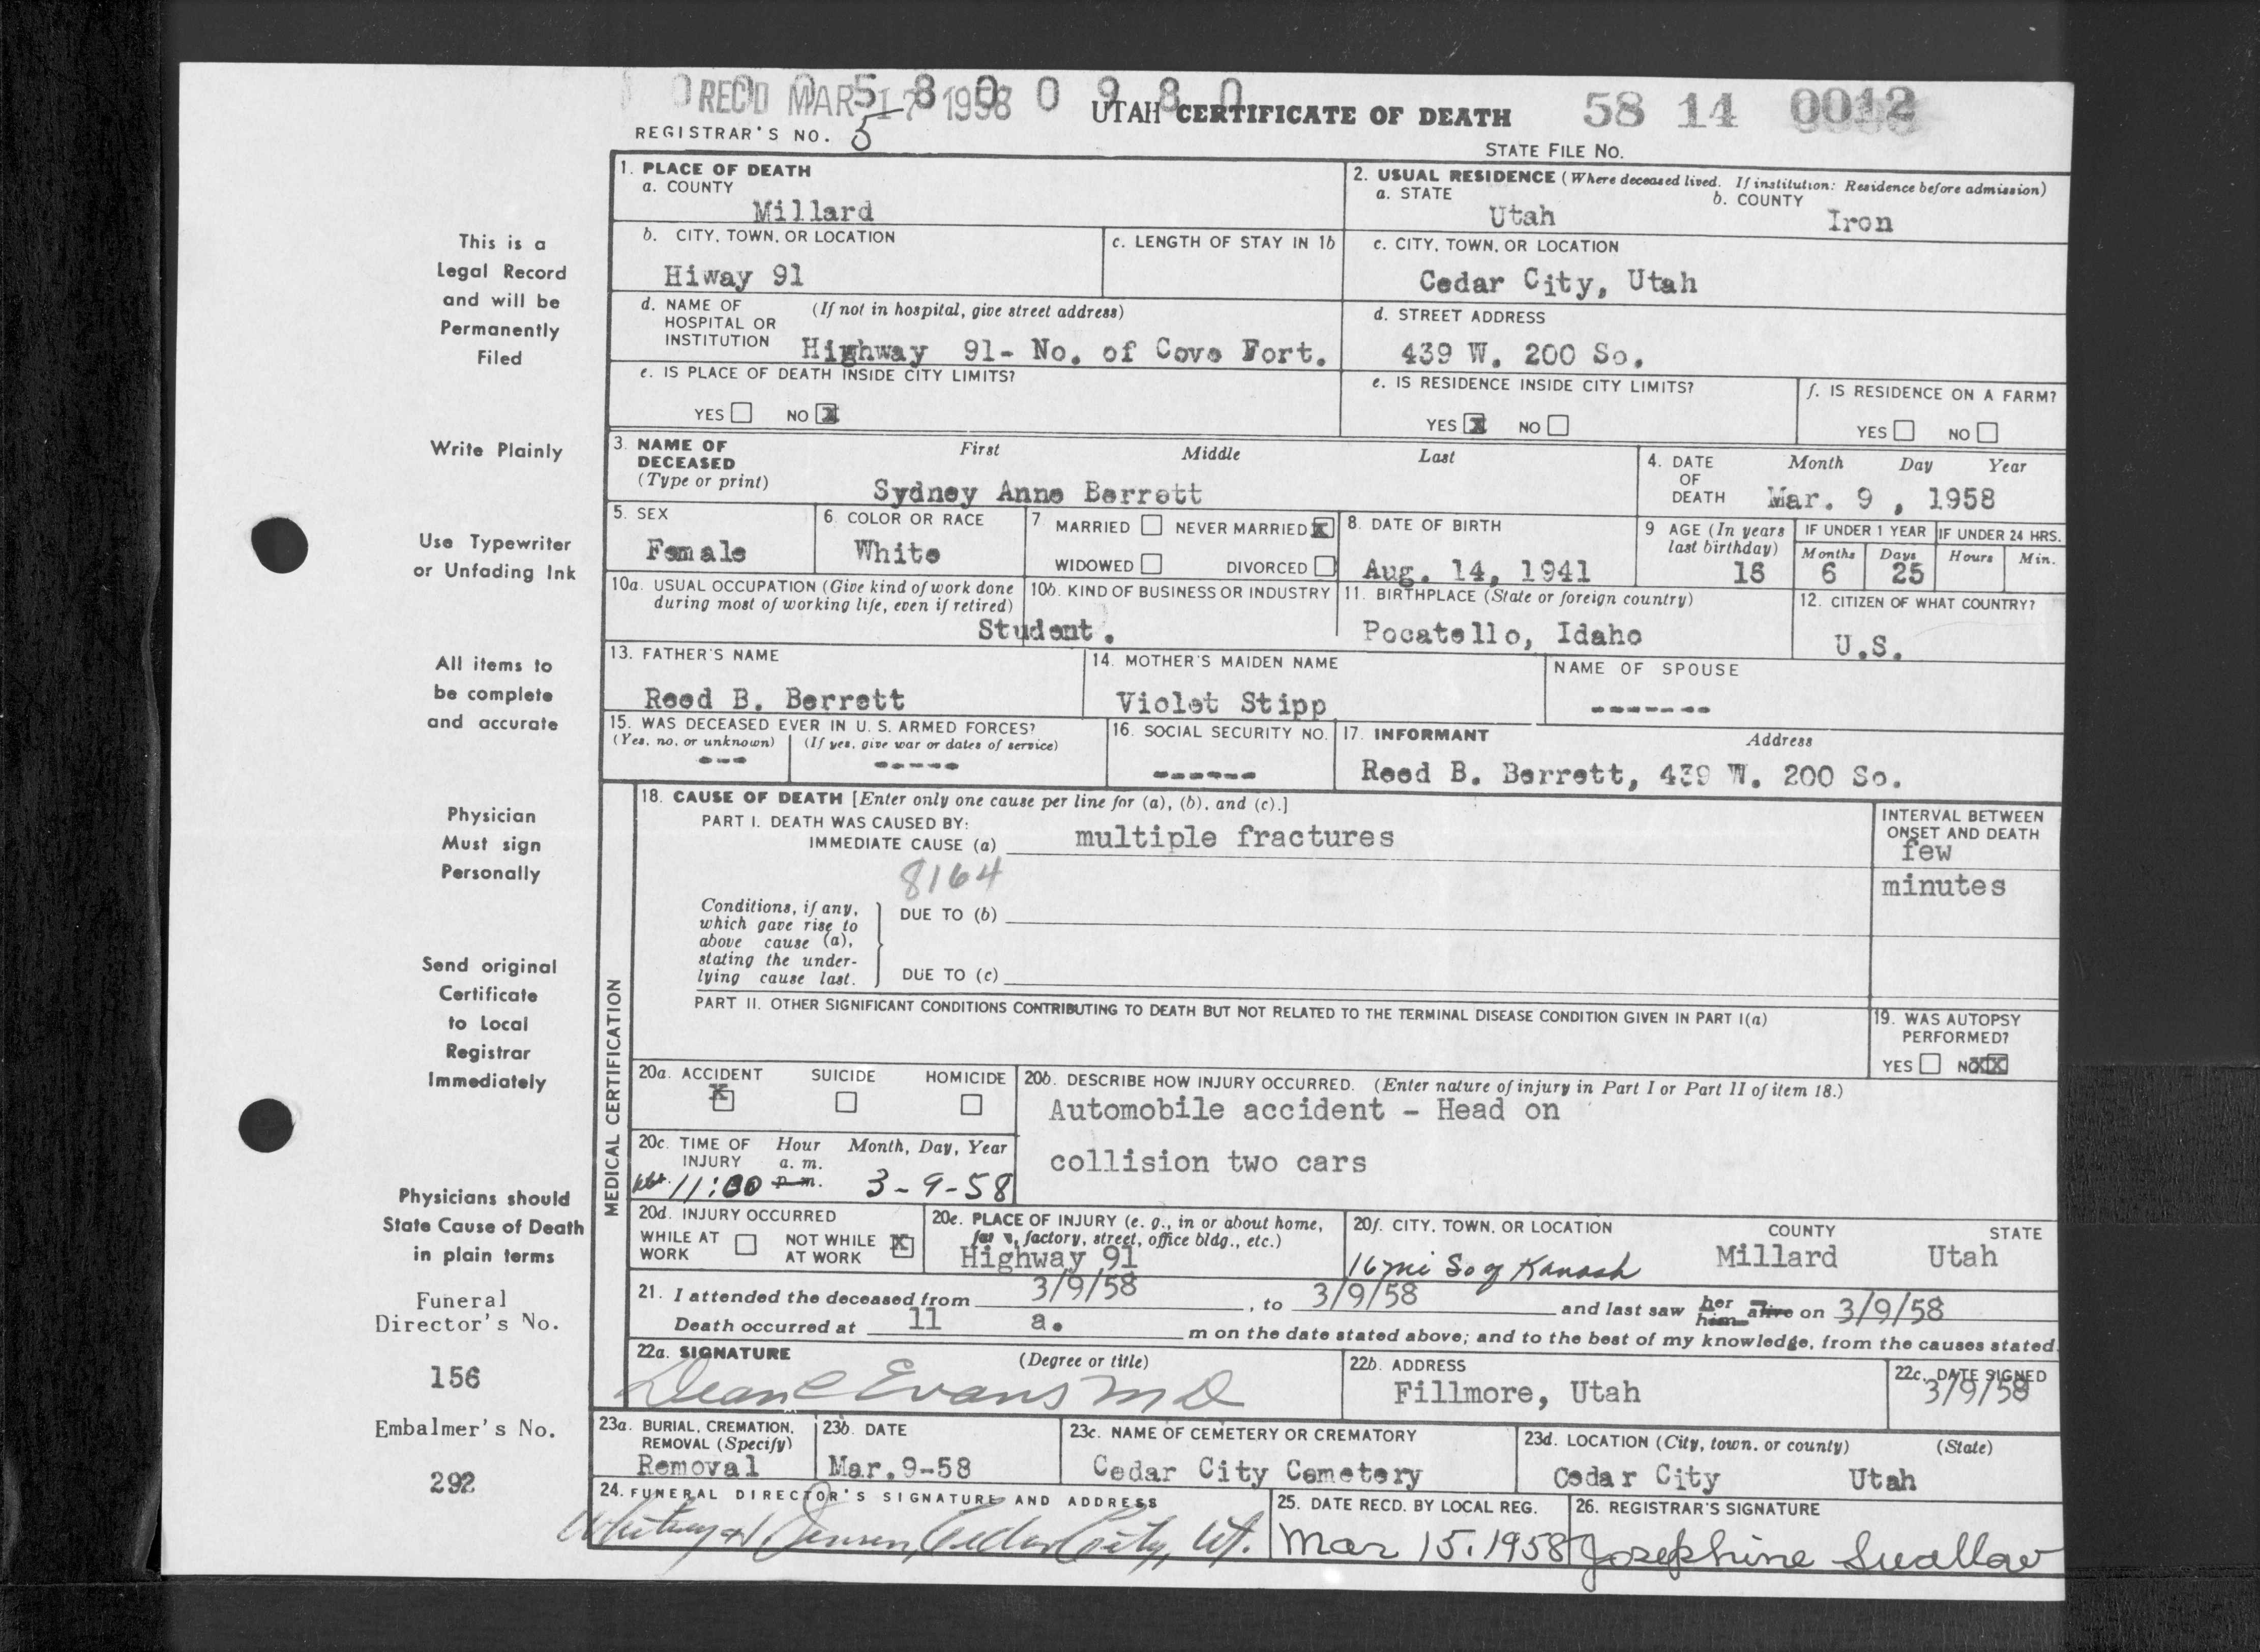 REC'D MAR 17 1958
5 8 0 0 9 8 0
UTAH CERTIFICATE OF DEATH
58 14 0012
REGISTRAR'S NO. 5
STATE FILE NO.
1. PLACE OF DEATH
a. COUNTY
Millard
2. USUAL RESIDENCE (Where deceased lived. If institution: Residence before admission)
a. STATE b. COUNTY
Utah Iron
b. CITY, TOWN, OR LOCATION
Hiway 91
c. LENGTH OF STAY IN 1b
c. CITY, TOWN, OR LOCATION
Cedar City, Utah
d. NAME OF HOSPITAL OR INSTITUTION (If not in hospital, give street address)
Highway 91- No. of Cove Fort.
d. STREET ADDRESS
439 W. 200 So.
e. IS PLACE OF DEATH INSIDE CITY LIMITS?
YES NO X
e. IS RESIDENCE INSIDE CITY LIMITS?
YES X NO
f. IS RESIDENCE ON A FARM?
YES NO
3. NAME OF DECEASED (Type or print)
First Middle Last
Sydney Anne Berrett
4. DATE OF DEATH Month Day Year
Mar. 9 , 1958
5. SEX
Female
6. COLOR OR RACE
White
7 MARRIED NEVER MARRIED X
WIDOWED DIVORCED
8. DATE OF BIRTH
Aug. 14, 1941
9 AGE (In years last birthday)
16
IF UNDER 1 YEAR IF UNDER 24 HRS.
Months Days Hours Min.
6 25
10a. USUAL OCCUPATION (Give kind of work done during most of working life, even if retired)
Student.
10b. KIND OF BUSINESS OR INDUSTRY
11. BIRTHPLACE (State or foreign country)
Pocatello, Idaho
12. CITIZEN OF WHAT COUNTRY?
U.S.
13. FATHER'S NAME
Reed B. Berrett
14. MOTHER'S MAIDEN NAME
Violet Stipp
NAME OF SPOUSE
-------
15. WAS DECEASED EVER IN U. S. ARMED FORCES?
(Yes, no, or unknown) (If yes, give war or dates of service)
--- -----
16. SOCIAL SECURITY NO.
------
17. INFORMANT Address
Reed B. Berrett, 439 W. 200 So.
MEDICAL CERTIFICATION
18. CAUSE OF DEATH [Enter only one cause per line for (a), (b), and (c).]
PART I. DEATH WAS CAUSED BY:
IMMEDIATE CAUSE (a) multiple fractures
8164
INTERVAL BETWEEN ONSET AND DEATH
few
minutes
Conditions, if any, which gave rise to above cause (a), stating the underlying cause last.
DUE TO (b)
DUE TO (c)
PART II. OTHER SIGNIFICANT CONDITIONS CONTRIBUTING TO DEATH BUT NOT RELATED TO THE TERMINAL DISEASE CONDITION GIVEN IN PART I(a)
19. WAS AUTOPSY PERFORMED?
YES NO XX
20a. ACCIDENT SUICIDE HOMICIDE
X
20b. DESCRIBE HOW INJURY OCCURRED. (Enter nature of injury in Part I or Part II of item 18.)
Automobile accident - Head on
collision two cars
20c. TIME OF INJURY Hour Month, Day, Year
a. m.
p. m.
11:00 3-9-58
20d. INJURY OCCURRED
WHILE AT WORK NOT WHILE AT WORK X
20e. PLACE OF INJURY (e. g., in or about home, farm, factory, street, office bldg., etc.)
Highway 91
20f. CITY, TOWN, OR LOCATION COUNTY STATE
16 mi So of Kanosh Millard Utah
21. I attended the deceased from 3/9/58, to 3/9/58 and last saw her him alive on 3/9/58
Death occurred at 11 a. m on the date stated above; and to the best of my knowledge, from the causes stated.
22a. SIGNATURE (Degree or title)
Dean C Evans MD
22b. ADDRESS
Fillmore, Utah
22c. DATE SIGNED
3/9/58
23a. BURIAL, CREMATION, REMOVAL (Specify)
Removal
23b. DATE
Mar.9-58
23c. NAME OF CEMETERY OR CREMATORY
Cedar City Cemetery
23d. LOCATION (City, town, or county) (State)
Cedar City Utah
24. FUNERAL DIRECTOR'S SIGNATURE AND ADDRESS
Cedar City, Ut.
25. DATE RECD. BY LOCAL REG.
Mar 15, 1958
26. REGISTRAR'S SIGNATURE
Josephine Swallow
This is a
Legal Record
and will be
Permanently
Filed
Write Plainly
Use Typewriter
or Unfading Ink
All items to
be complete
and accurate
Physician
Must sign
Personally
Send original
Certificate
to Local
Registrar
Immediately
Physicians should
State Cause of Death
in plain terms
Funeral
Director's No.
156
Embalmer's No.
292